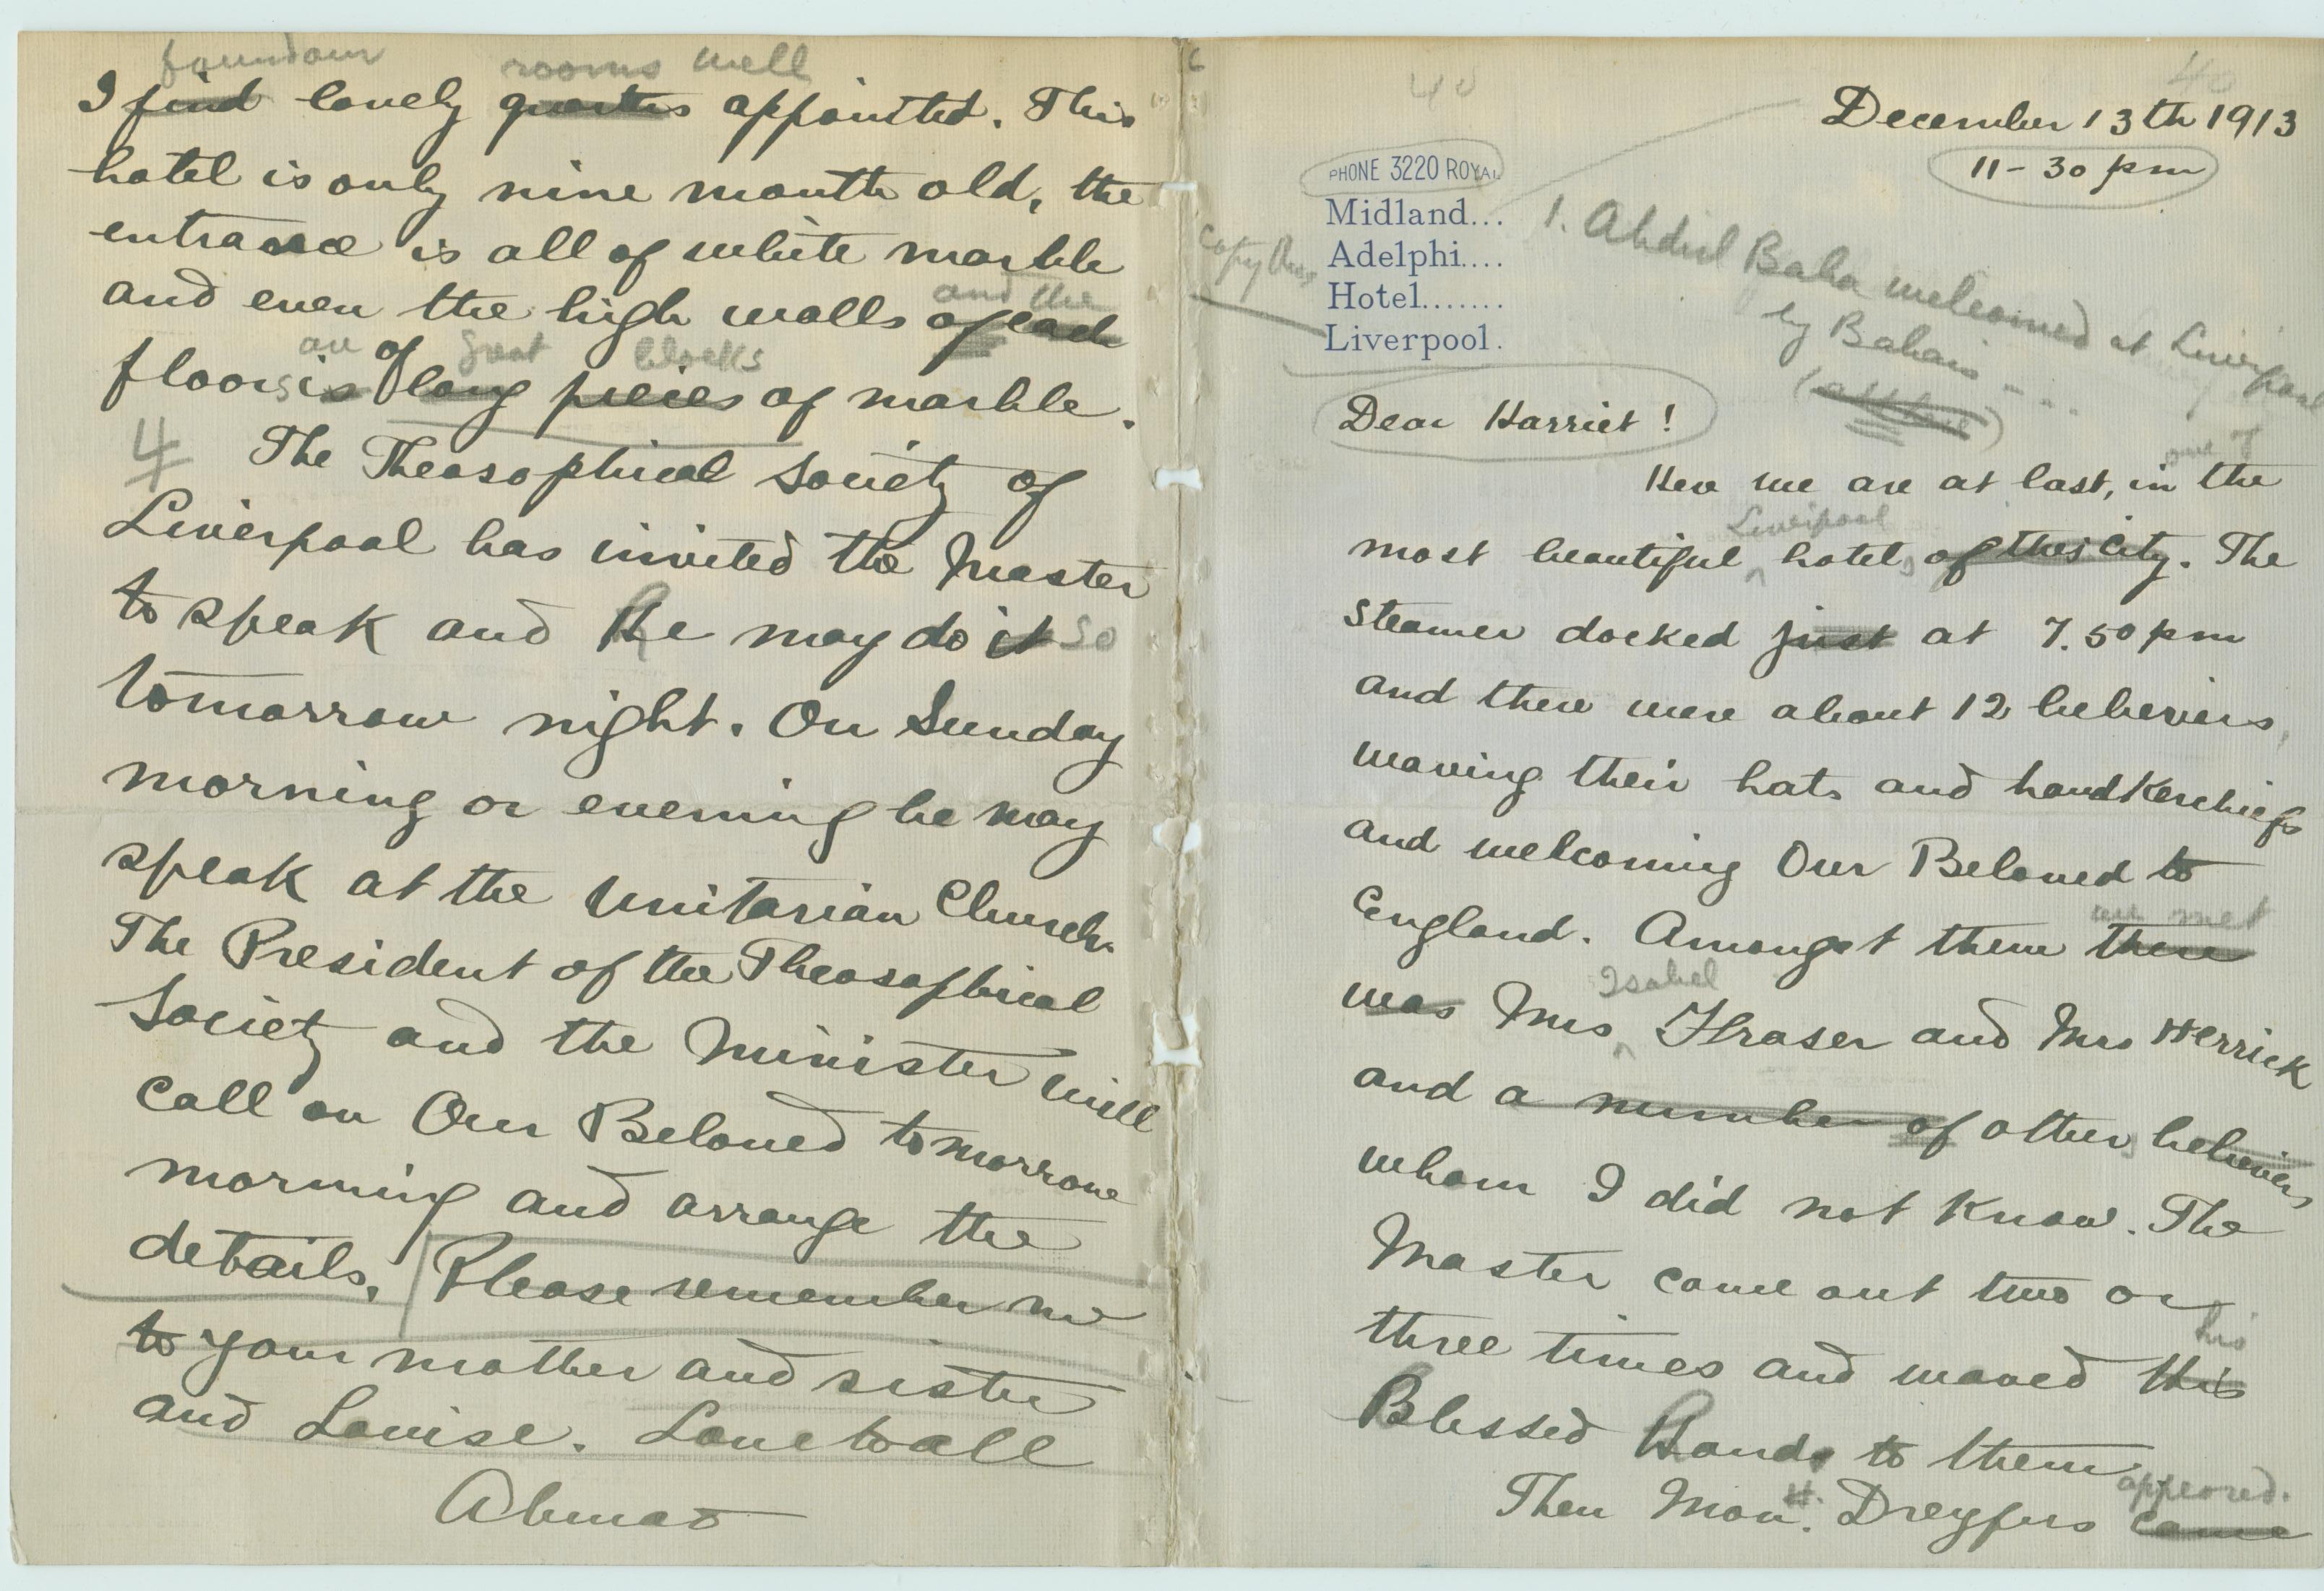 foundour rooms well
I find lovely quarters appointed. This
hotel is only nine month old, the
entrance is all of white marble
and even the high walls of each
and the
floors is of long pieces of marble.
are great blocks
4
The Theosophical Society of
Liverpool has invited the Master
to speak and He may do it so
tomorrow night. On Sunday
morning or evening he may
speak at the Unitarian Church.
The President of the Theosophical
Society and the Minister will
call on Our Beloved tomorrow
morning and arrange the
details. Please remember me
to your mother and sister
and Louise. Love to all
Ahmad
40
40
December 13th 1913
11-30 pm
PHONE 3220 ROYAL
Midland...
Adelphi....
Hotel.......
Liverpool.
copy this
1. Abdul Baha welcomed at Liverpool
by Bahais
Dear Harriet!
one of
Here we are at last, in the
Liverpool
most beautiful hotel, of this City. The
Steamer docked just at 7.50 pm
and there were about 12 believers,
waving their hats and handkerchiefs
and welcoming Our Beloved to
we met
England. Amongst them there
Isabel
was Mrs Fraser and Mrs Herrick
and a number of other believers,
whom I did not know. The
Master came out two or
his
three times and waved this
Blessed Hands to them
appeared.
H.
Then Mon. Dreyfus came